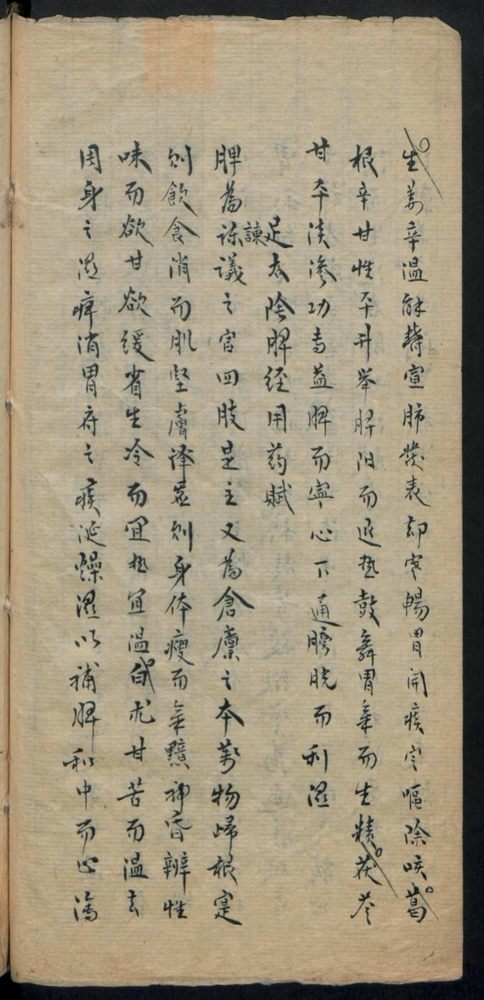 生姜辛温解鬱宣肺發表却寒暢胃開痰定嘔除咳葛
根辛甘性平升举脾阳而退热鼓舞胃氣而生精茯苓
甘平淡渗功专益脾而寧心下通膀胱而利湿
足太陰脾經用药赋
脾為諫議之官四肢是主又為倉廩之本萬物歸根寔
則飲食消而肌坚膚泽虚則身体瘦而氣黯神昏辨性
味而欲甘欲缓省生冷而宜热宜温白朮甘苦而温去
因身之湿痺消胃府之痰涎燥湿以補脾和中而心